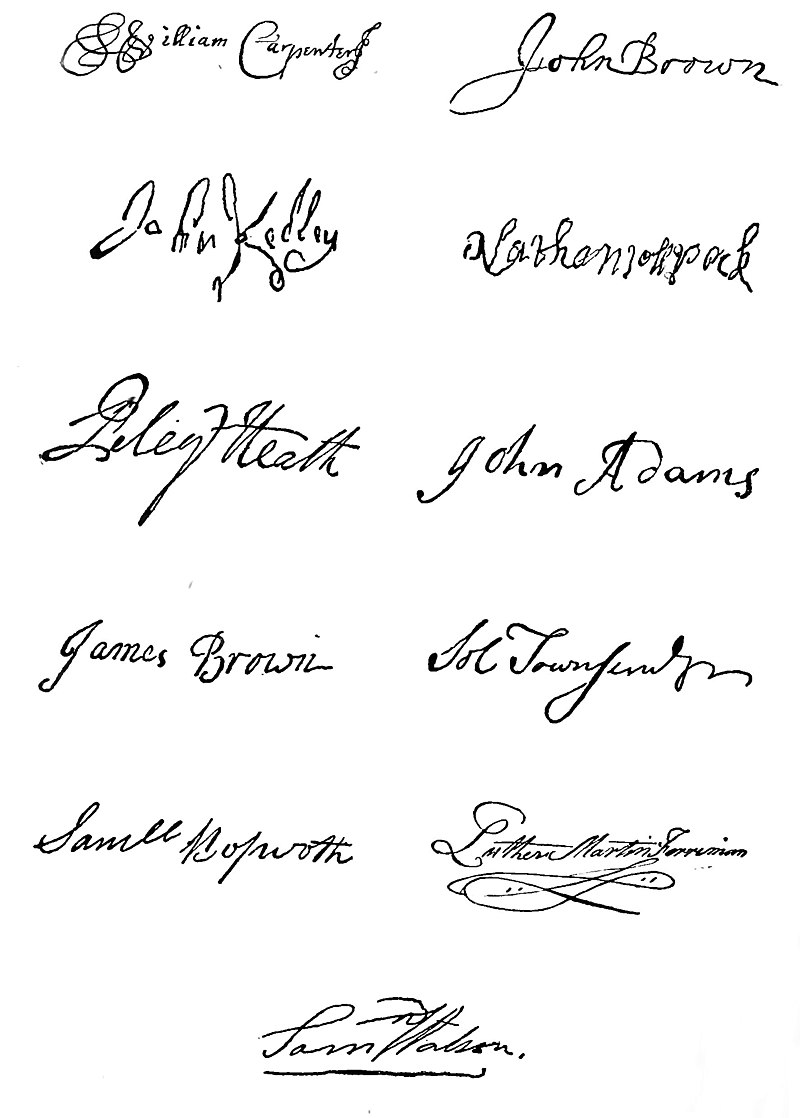 William Carpenter
John Brown
John Kelley
Nathaniel peck
Peleg Heath
John Adams
James Brown
Sol Townsend Jr
Samll Bosworth
Luther Martin Ferriman
Samn Watson.